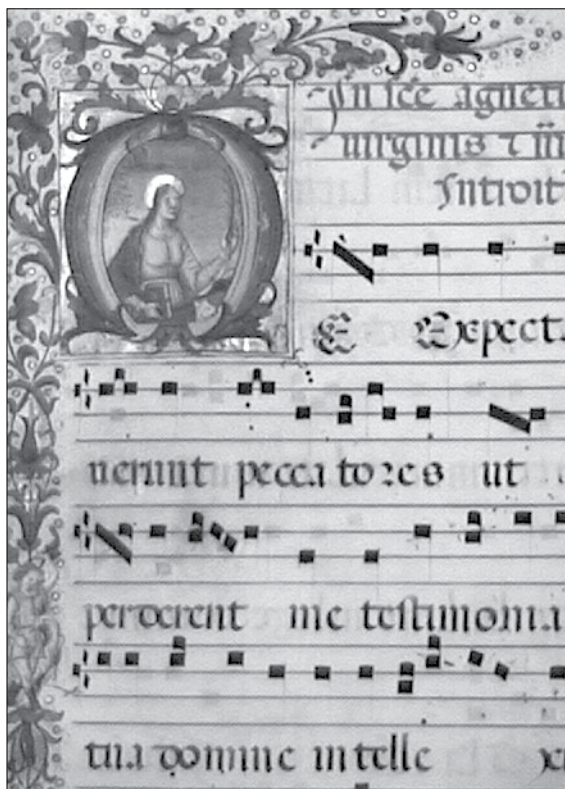 In sce agneti
uirginis ⁊ m̄
Introit
E Expecta
uerunt peccatores ut
perderent me testimonia
tua domine intelle xi